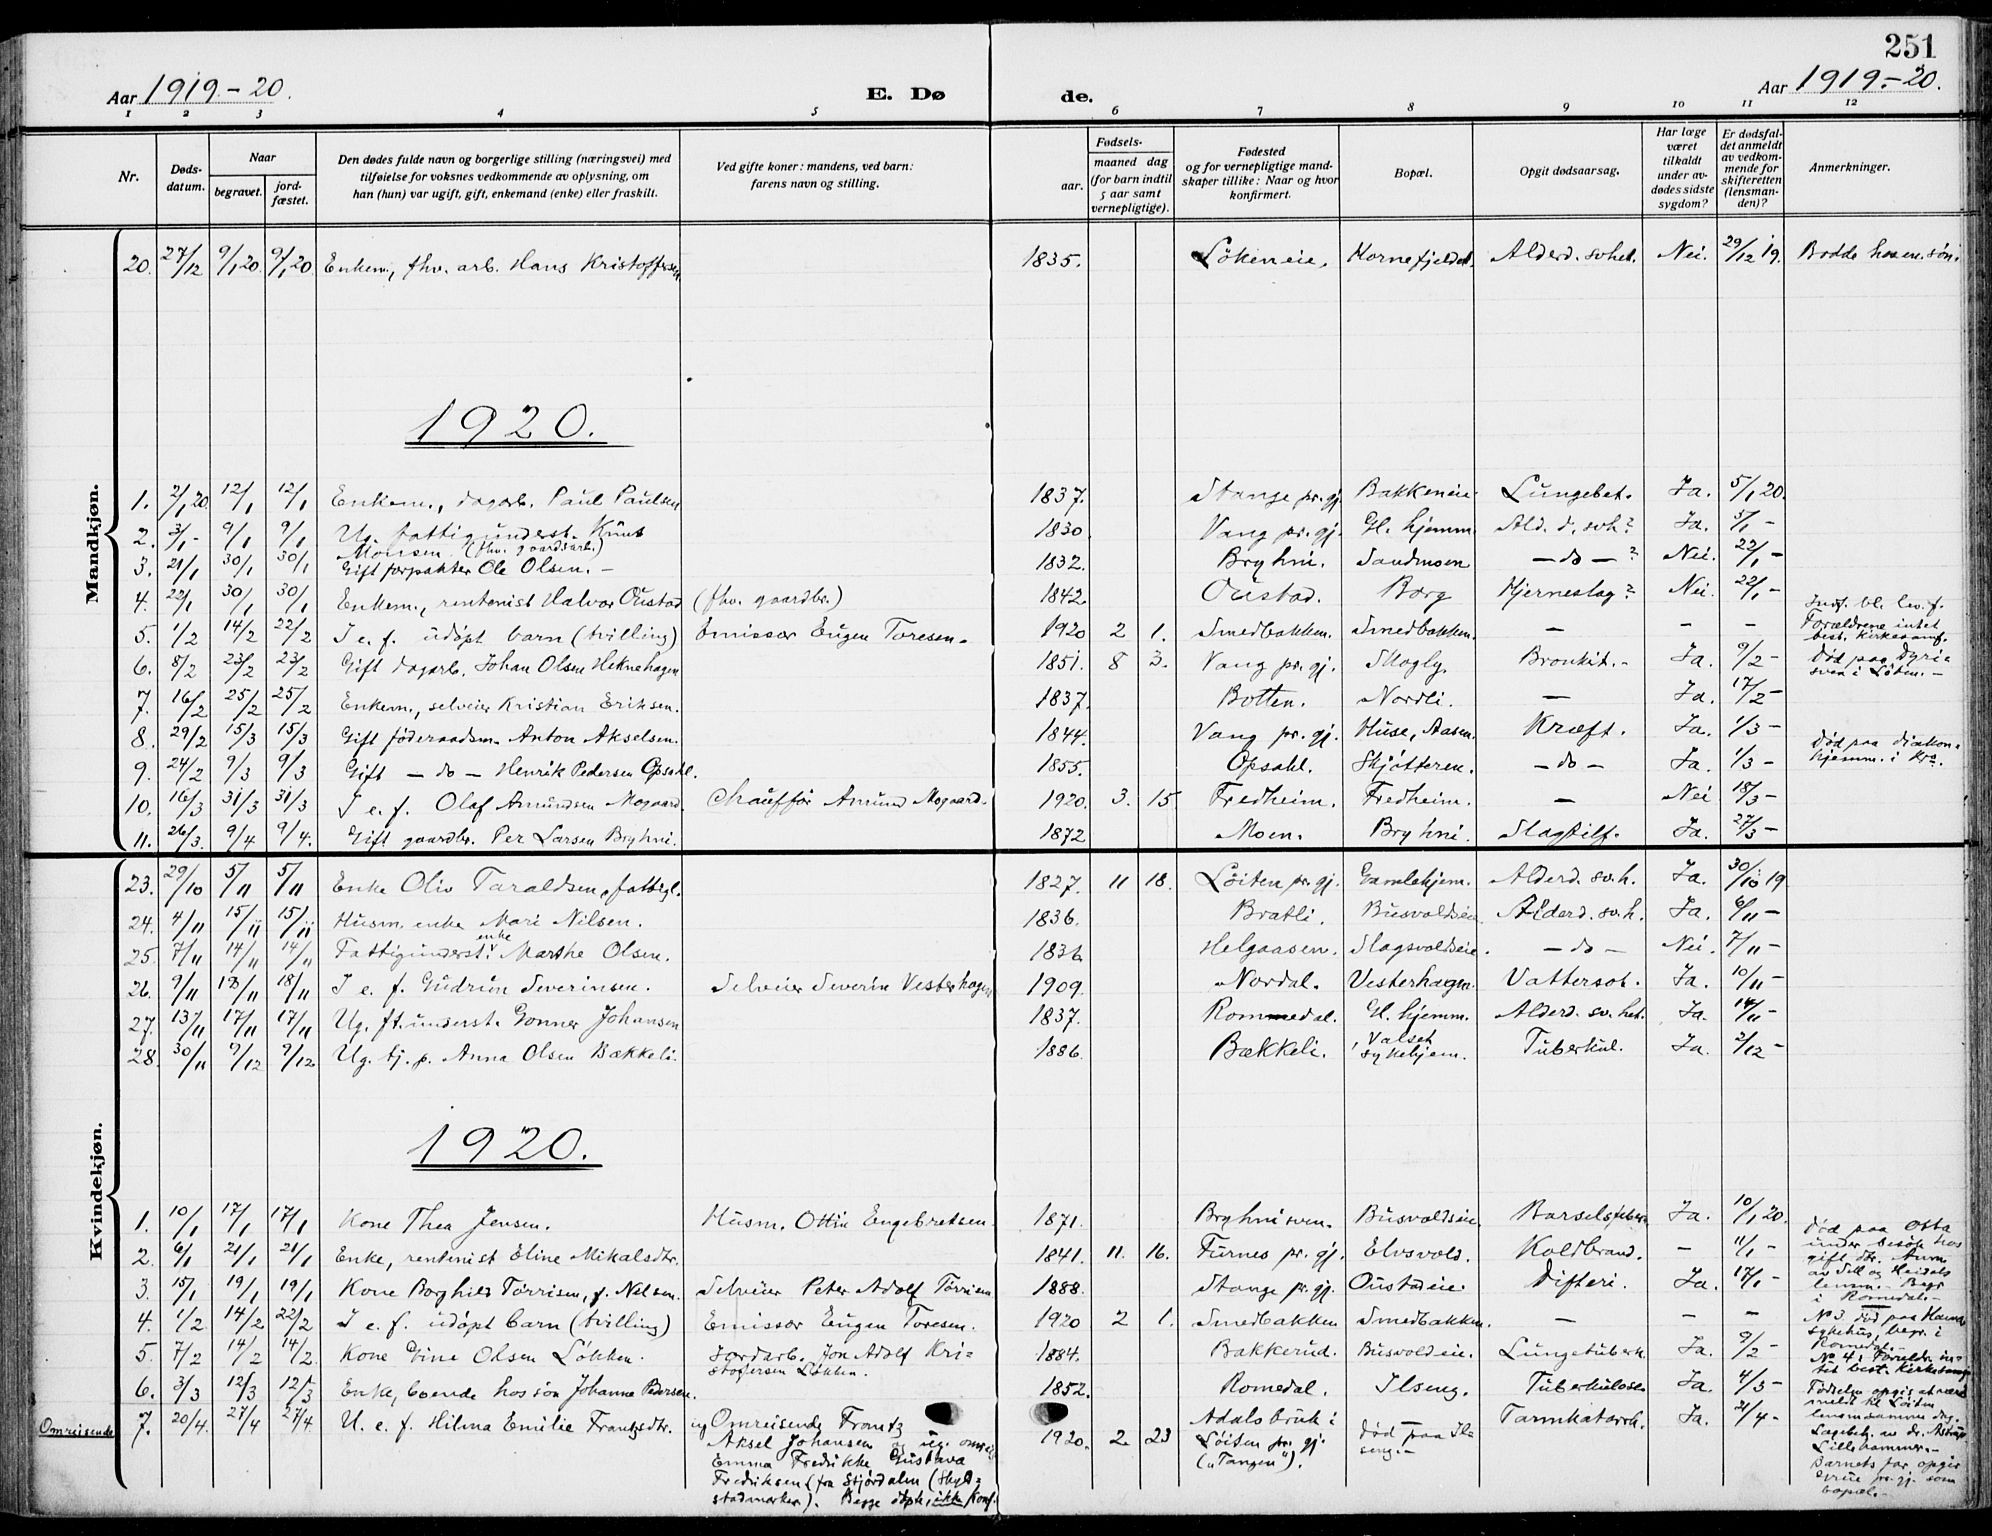 251
Aar 1919.-20. E. Dø de. Aar 1919.-20.
1 2 3 4 5 6 7 8 9 10 11 12
Nr. Døds-datum. Naar begravet. jord-fæstet. Den dødes fulde navn og borgerlige stilling (næringsvei) med tilføielse for voksnes vedkommende av oplysning, om han (hun) var ugift, gift, enkemand (enke) eller fraskilt. Ved gifte koner: mandens, ved barn: farens navn og stilling. Fødsels- aar. maaned dag (for barn indtil 5 aar samt vernepligtige). Fødested og for vernepligtige mandskaper tillike: Naar og hvor konfirmert. Bopæl. Opgit dødsaarsag. Har læge været tilkaldt under avdødes sidste sygdom? Er dødsfaldet anmeldt av vedkommende for skifteretten (lensmanden)? Anmerkninger.
Mandkjøn.
20. 27/12 9/1 20. 9/1 20 Enkem., fhv. arb. Hans Kristoffersen 1835. Løkeneie. Hornefjeldet. Alderd. svhet. Nei. 29/12 19. Bodde hos en søn.
1920.
1. 2/1 20. 12/1 12/1 Enkem., dagarb. Paul Paulsen 1837. Stange pr. gj. Bakkeneie. Lungebet. Ja. 5/1 20.
2. 3/1 - 9/1 9/1 Ug. fattigunderst. Knut Monsen (fhv. gaardsarb.) 1830. Vang pr. gj. Gl. hjemm. Ald. d. svh? Ja. 5/1 -
3. 21/1 30/1 30/1 Gift forpakter Ole Olsen. - 1832. Bryhni. Sandmoen - do - ? Nei. 22/1 -
4. 22/1 30/1 30/1 Enkem., rentenist Halvor Oustad (fhv. gaardbr.) 1842. Oustad. Borg Hjerneslag? Nei. 22/1 -
5. 1/2 14/2 22/2 I e. f. udøpt barn (tvilling) Emissær Eugen Toresen. 1920 2 1. Smedbakken. Smedbakken. - - - Forældrene intet best. kirkesamf.
6. 8/2 23/2 23/2 Gift dagarb. Johan Olsen Heknehagen 1851. 8 3. Vang pr. gj. Skogly. Bronkit. - Ja. 9/2 - Død paa Dyrisven i Løten. -
7. 16/2 25/2 25/2 Enkem., selveier Kristian Eriksen. 1837. Botten. Nordli. - Ja. 17/2 -
8. 29/2 15/3 15/3 Gift føderaadsm. Anton Akselsen. 1844. Vang pr. gj. Huse, Aasen. Kræft. Ja. 1/3 -
9. 24/2 9/3 9/3 Gift - do - Henrik Pedersen Opsahl. 1855. Opsahl. Skjøtteren. - do - Ja. 1/3 - Død paa diakonhjemm. i Kra.
10. 16/3 31/3 31/3 I e. f. Olaf Amundsen Mogaard. Chauffør Amund Mogaard. 1920. 3. 15 Fredheim. Fredheim. - Nei 18/3 -
11. 26/3. 9/4 9/4. Gift gaardbr. Per Larsen Bryhni. 1872 Moen. Bryhni. Slagtilf. Ja. 27/3 -
Kvindekjøn.
23. 29/10 5/11 5/11 Enke Oliv Taraldsen, fattigl. 1827. 11 18. Løiten pr. gj. Gamlehjem. Alderd. sv.h. Ja. 30/10 19
24. 4/11 15/11 15/11 Husm. enke Mari Nilsen. 1836. Bratli. Busvoldseie Alderd. sv.h. Ja. 6/11 -
25. 7/11 14/11 14/11 Fattigunderst. enke Marthe Olsen. 1836 Helgaasen. Slagsvoldseie. - do - Nei. 7/11 -
26. 9/11 18/11 18/11 I e. f. Gudrun Severinsen. Selveier Severin Vesterhagen 1909. Nordal. Vesterhagen. Vattersot. Ja. 10/11 -
27. 13/11 17/11 17/11 Ug. ft.underst. Gonner Johansen 1837. Rommedal. Gl. hjemm. Alderd. sv. het. Ja. 14/11 -
28. 30/11 9/12 9/12 Ug. tj. p. Anna Olsen Bækkeli. 1886. Bækkeli. Valset sykehjem. Tuberkul. Ja. 2/12 -
1920.
1. 10/1 17/1 17/1 Kone Thea Jensen. Husm. Ottin Engebretsen 1871. Bryhnisven. Busvoldseie. Barselsfeber Ja. 10/1 20.
2. 6/1 21/1 21/1 Enke, rentenist Eline Mikalsdtr. 1841. 11. 16. Furnes pr. gj. Elvsvold. Koldbrand. - 11/1 - Død paa Otta under besøk hos gift dtr. Anm. av Sell og Heidals lensm. - Begr. i Romedal. -
3. 15/1 19/1 19/1 Kone Borghild Tørrisen, f. Nelsen. Selveier Peter Adolf Tørrisen 1888. Stange pr. gj. Oustadeie. Difteri. Ja. 17/1 - No 3. død paa Hamar sykehus, begr. i Romedal.
4. 1/2 14/2 22/2 I e. f. udøpt barn (tvilling) Emissær Eugen Toresen. 1920 2 1. Smedbakken Smedbakken. - - - No 4. Forældre intet best. kirkesamf.
5. 7/2 14/2 14/2 Kone Gine Olsen Løkken. Jordarb. Jon Adolf Kristofersen Løkken. 1884. Bakkerud. Busvoldeie. Lungetuberk. Ja. 9/2 -
6. 3/3 12/3 12/3 Enke, boende hos søn Johanne Pedersen. 1852. Romedal. Ilseng. Tuberkulose Ja. 4/3 -
Omreisende 7. 20/4. 27/4 27/4. U. e. f. Hilma Emilie Frantzsdtr. ug Omreisende Frantz Aksel Johansen og ug. omreis. Emma Fredrikke Gustava Fredriksen (fra Stjørdalen (Skydstadmarken). Begge døpt, ikke konf. 1920. 2. 23 Adalsbruk i Løiten pr. gj. („Tangen"). Død paa Ilseng. - Tarmkatarrh. Ja. 21/4 - Fødselen opgis at være meldt til Løiten lensm. samme dag. Lægebeh. av dr. Astrup Lillehammer. - Barnets far opgir pr. gj. som bopæl. -